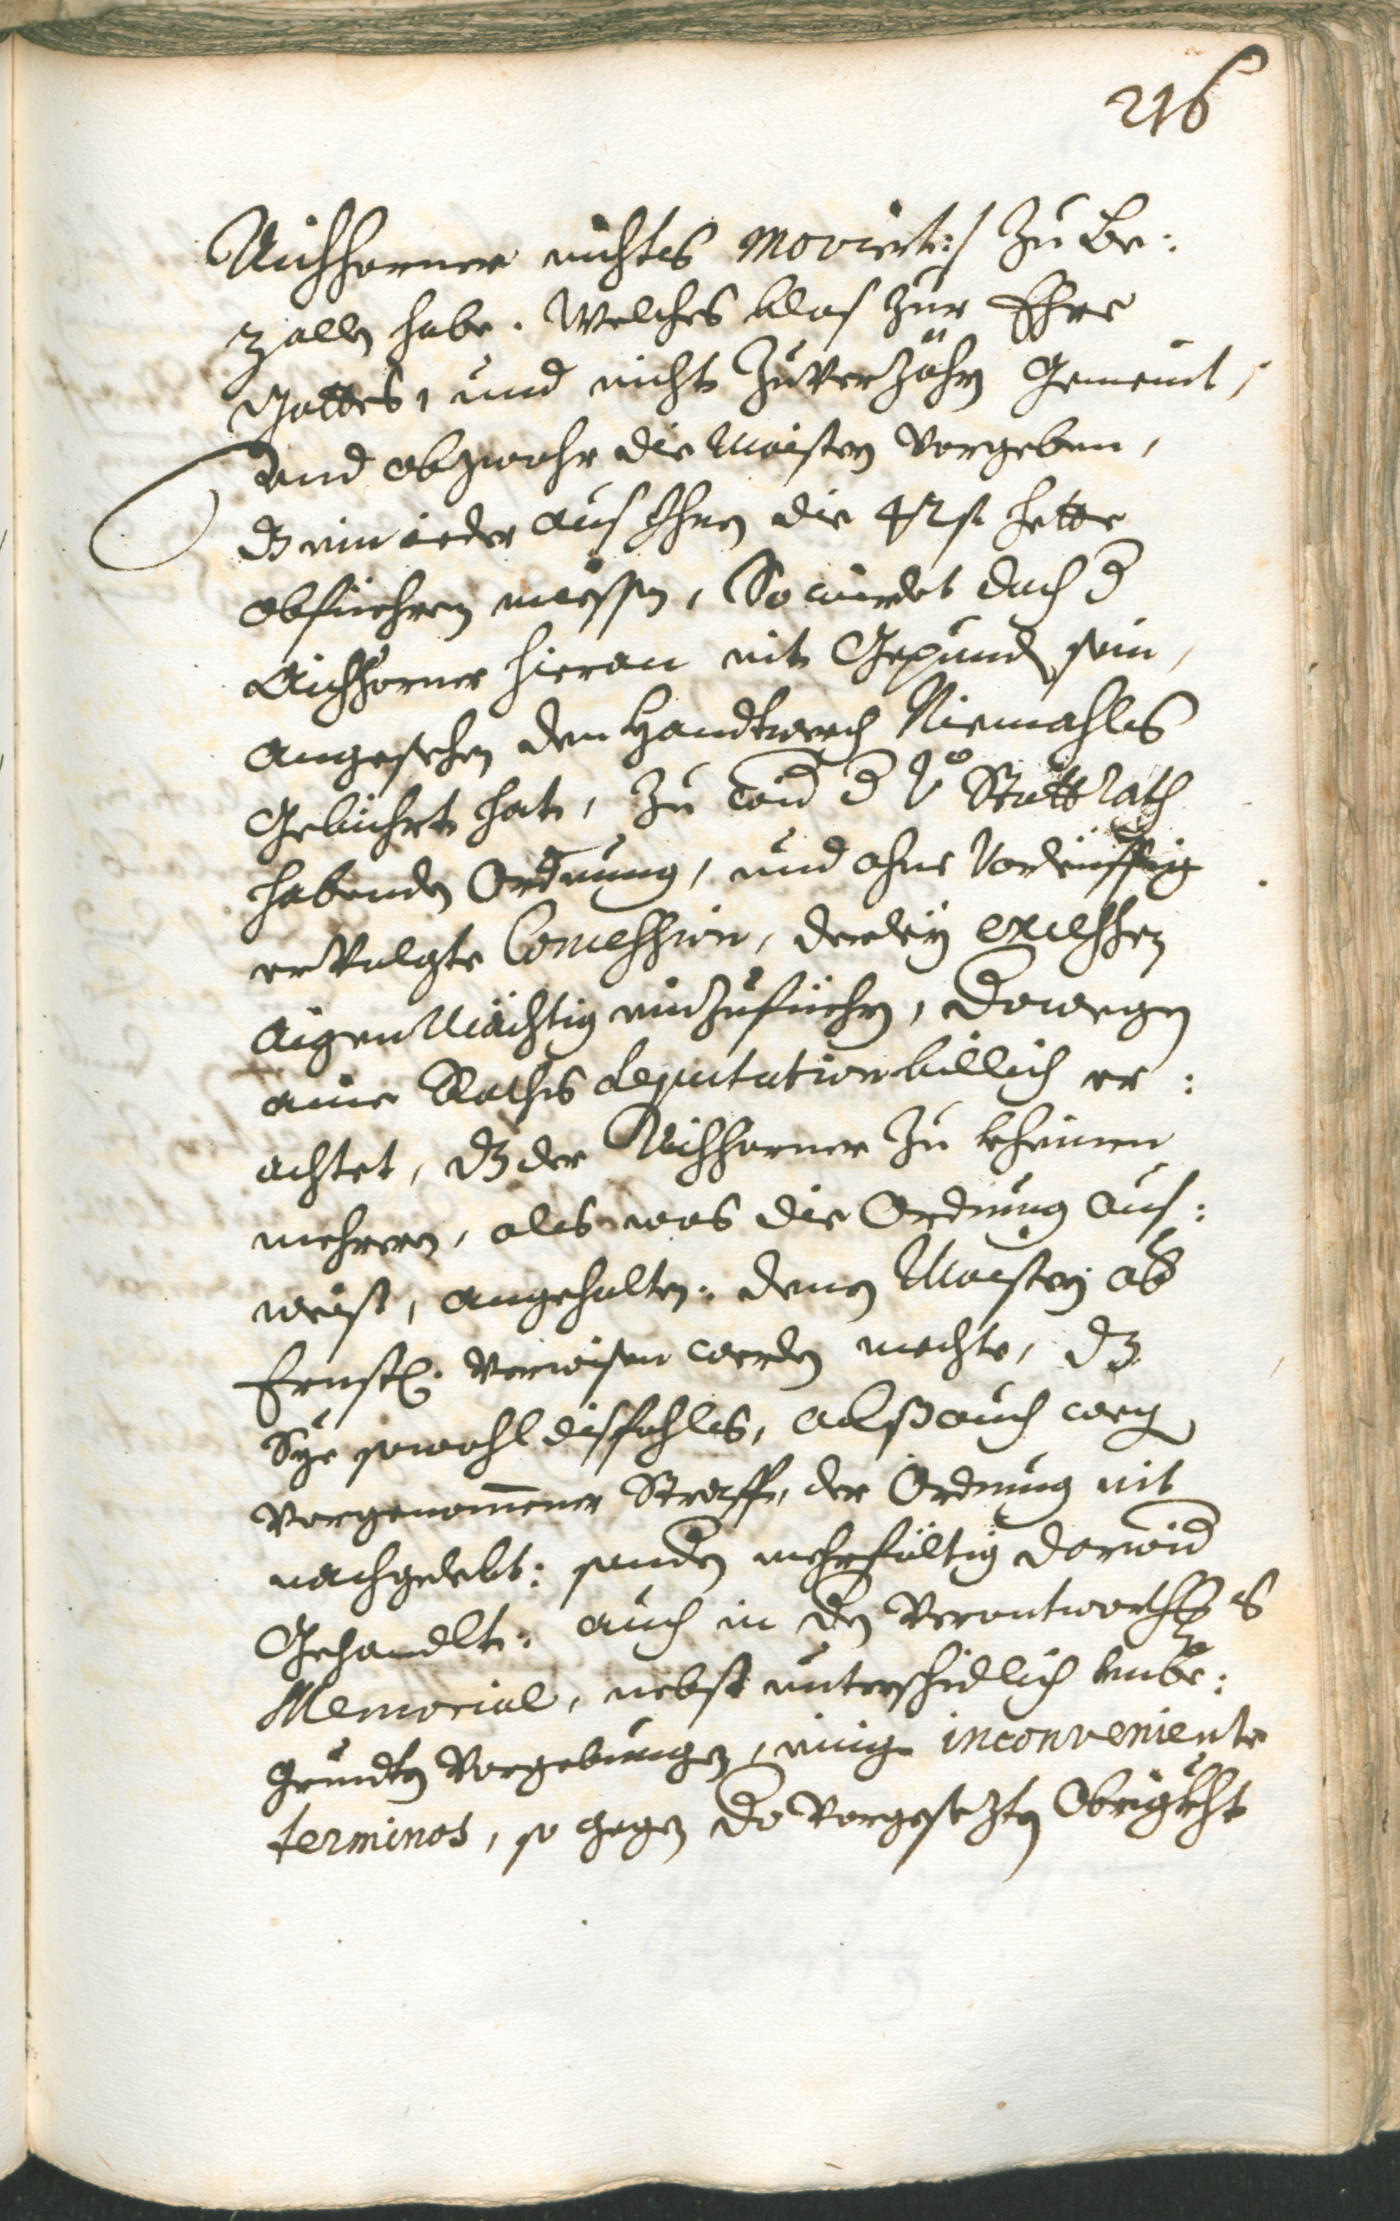 216
Aichhorner nichts moviert:/ zu be:
zallen habe. Welches blos zur Ehre
Gottes, und nicht zuverzöhrn gemeint,
und obzwahr die Maister vorgeben,
dz ein ieder aus Ihnen die 42 fl. hette
abfüehren müessen, So würdet doch d
Aichhorner hieran nit gepundten sein,
angesehen den Handtwerch Niemahls
Gebührt hat, zu wid d Statt Rath
habenden Ordnung, und ohne Vorleuffig
ervolgte Concession, derley excessen
aigenmächtig einzufüehrn, dowegen
aine Raths deputation billich er:
achtet, dz der Aichhorner zu kheinen
mehrern, als was die Ordnung aus:
weist, angehalten: denen Maistern ab
Ernstl: verwisen werden mechte, dz
Sye sowohl disfahls, alß auch weg
vorgenommener Straff, der Ordnung nit
nachgelebt: sonder mehrfältig darwid
Gehandlt: auch in den Verantworth
Memorial, nebst unterschidlich unbe:
gründten Vorgebungen, einige inconveniente
terminos, so gegen do vorgesezten Obrigkheit